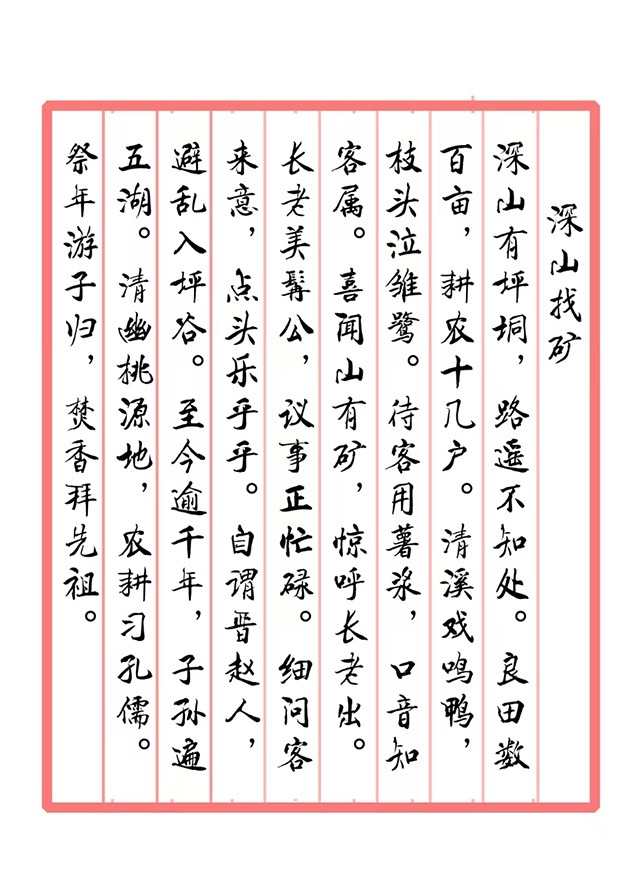 深山找矿
深山有坪垌，路遥不知处。良田数
百亩，耕农十几户。清溪戏鸣鸭，
枝头泣雏鹭。待客用薯浆，口音知
客属。喜闻山有矿，惊呼长老出。
长老美髯公，议事正忙碌。细问客
来意，点头乐乎乎。自谓晋赵人，
避乱入坪谷。至今逾千年，子孙遍
五湖。清幽桃源地，农耕习孔儒。
祭年游子归，焚香拜先祖。